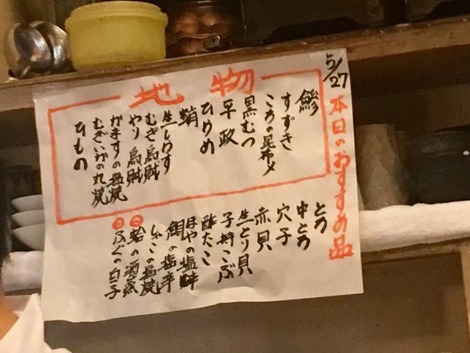 5/27
本日のおすすめの品
地物
鯵
すずき
こちの昆布〆
黒むつ
平政
ひらめ
蛸
生しらす
むぎ烏賊
やり烏賊
かますの塩焼
むぎいかの丸焼
ひもの
とろ
中とろ
穴子
赤貝
生とり貝
子持こぶ
酢だこ
ほやの塩辛
の塩辛
の塩焼
蛤の酒蒸
ふぐの白子